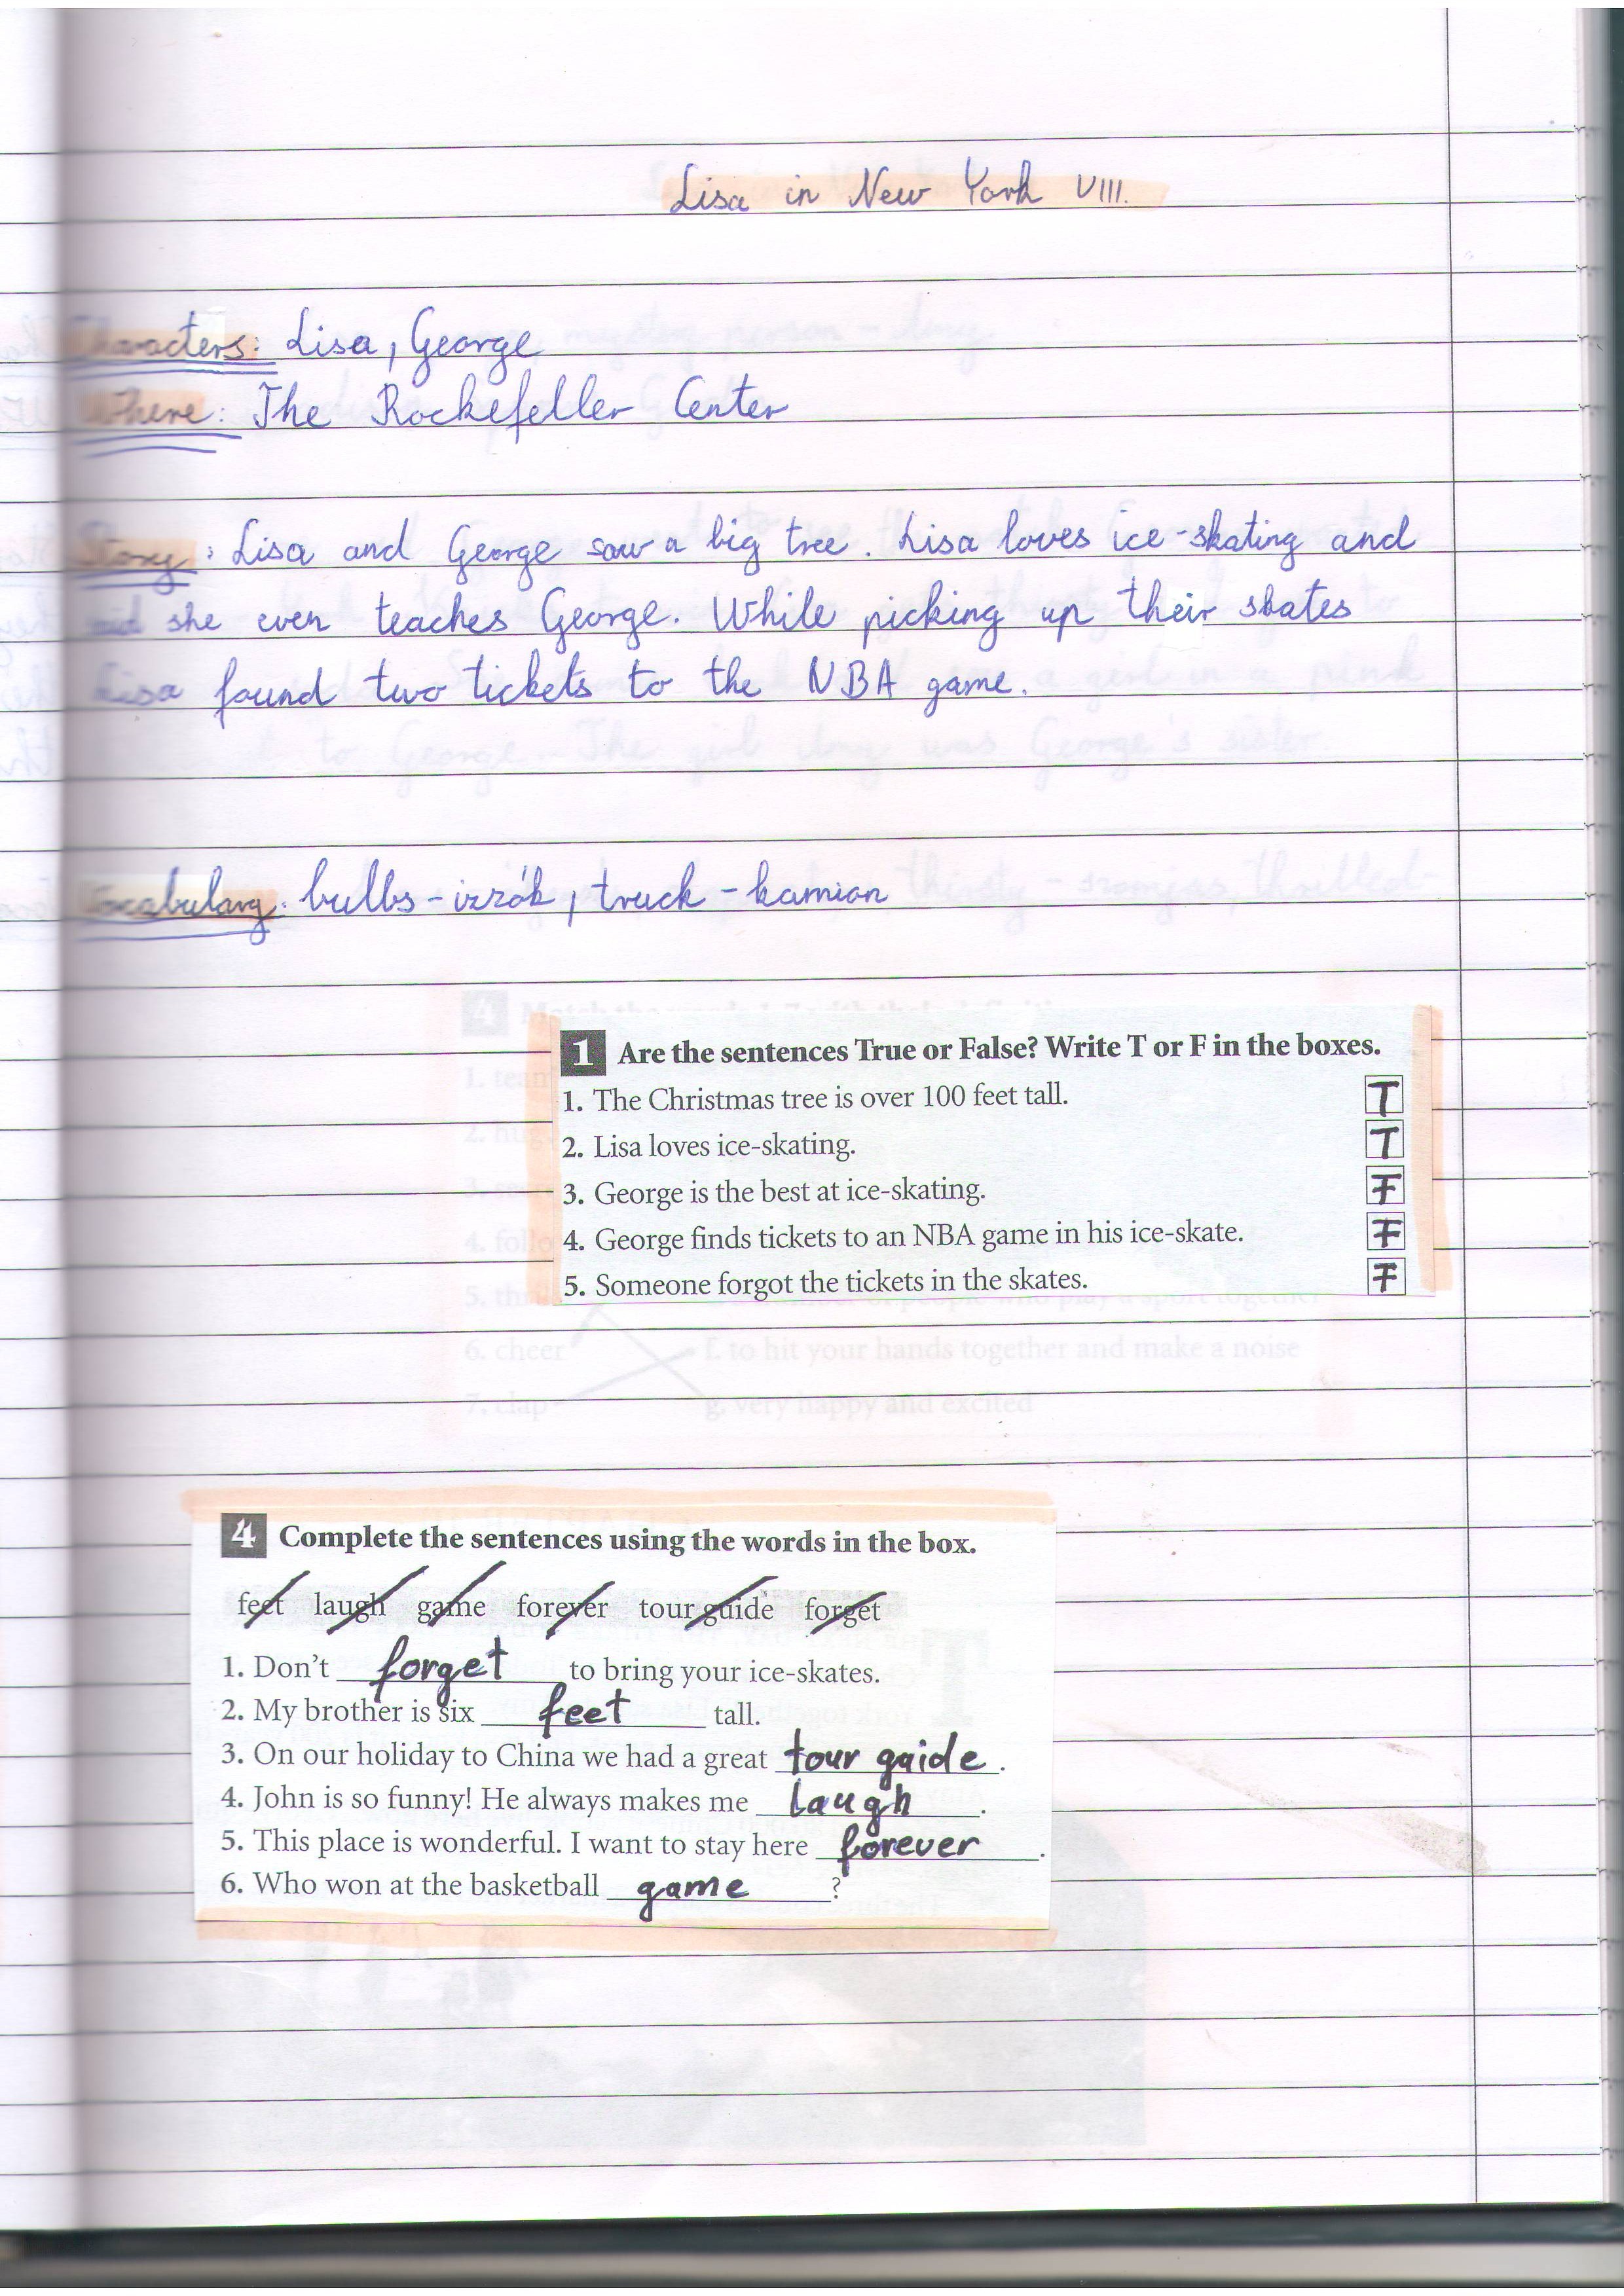 Lisa in New York VIII.
Characters: Lisa, George
Where: The Rockefeller Center
Story: Lisa and George saw a big tree. Lisa loves ice-skating and
she even teaches George. While picking up their skates
Lisa found two tickets to the NBA game.
Vocabulary: bulbs - izzók, truck - kamion
1 Are the sentences True or False? Write T or F in the boxes.
1. The Christmas tree is over 100 feet tall. T
2. Lisa loves ice-skating. T
3. George is the best at ice-skating. F
4. George finds tickets to an NBA game in his ice-skate. F
5. Someone forgot the tickets in the skates. F
4 Complete the sentences using the words in the box.
feet laugh game forever tour guide forget
1. Don't forget to bring your ice-skates.
2. My brother is six feet tall.
3. On our holiday to China we had a great tour guide.
4. John is so funny! He always makes me laugh.
5. This place is wonderful. I want to stay here forever.
6. Who won at the basketball game?